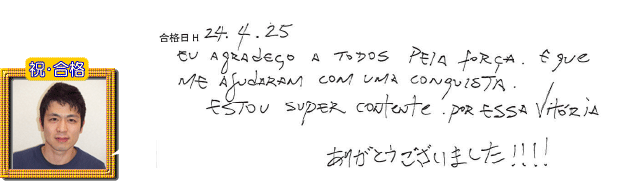 合格日 H 24.4.25
EU AGRADEÇO A TODOS PELA FORÇA. E QUE
ME AJUDARAM COM UMA CONQUISTA.
ESTOU SUPER CONTENTE. POR ESSA VITÓRIA
祝・合格
ありがとうございました!!!!